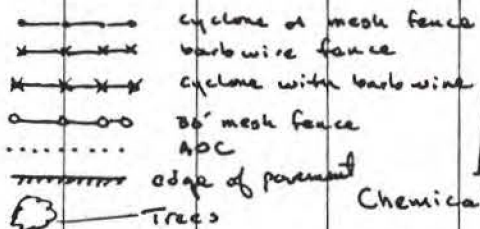 cyclone or mesh fence
barbwire fence
cyclone with barbwire
mesh fence
AOC
edge of pavement
Chemica
Trees